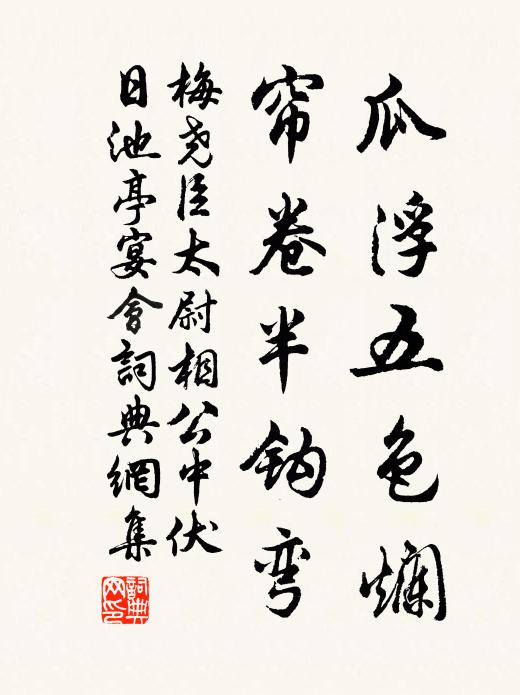 瓜浮五色爛
帘卷半鈎弯
梅尧臣太尉相公中伏
日池亭宴會詞典網集
詞典
网印